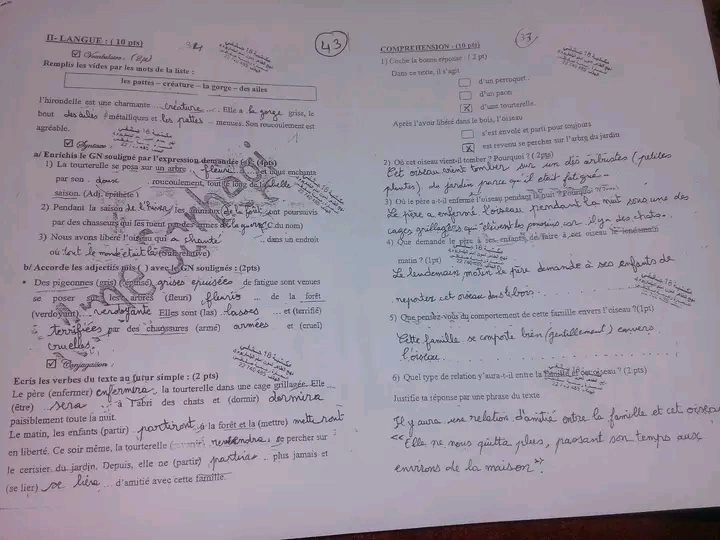 II- LANGUE : ( 10 pts)
43
Vocabulaire : (2pt)
Remplis les vides par les mots de la liste :
les pattes – créature – la gorge – des ailes
l'hirondelle est une charmante .... créature .... Elle a la gorge grise, le
bout des ailes métalliques et les pattes menues. Son roucoulement est
agréable.
Syntaxe :
a/ Enrichis le GN souligné par l'expression demandée (4pts)
1) La tourterelle se posa sur un arbre fleuri et nous enchante
par son doux roucoulement, tout le long de la belle
saison. (Adj. épithète)
2) Pendant la saison de l'hiver, les animaux de la forêt sont poursuivis
par des chasseurs qui les tuent par des armes de la guerre (C du nom)
3) Nous avons libéré l'oiseau qui a chanté dans un endroit
où tout le monde était là (Sub relative)
b/ Accorde les adjectifs mis ( ) avec le GN soulignés : (2pts)
• Des pigeonnes (gris) (épuisé) grises épuisées de fatigue sont venues
se poser sur les arbres (fleuri) fleuris ... de la forêt
(verdoyant) verdoyante Elles sont (las) lasses ... et (terrifié)
terrifiées par des chaussures (armé) armées et (cruel)
cruelles.
Conjugaison :
Ecris les verbes du texte au futur simple : (2 pts)
Le père (enfermer) enfermera la tourterelle dans une cage grillagée. Elle
(être) sera à l'abri des chats et (dormir) dormira
paisiblement toute la nuit.
Le matin, les enfants (partir) partiront à la forêt et la (mettre) mettront
en liberté. Ce soir même, la tourterelle reviendra se percher sur
le cerisier du jardin. Depuis, elle ne (partir) partira plus jamais et
(se lier) se liera d'amitié avec cette famille.
33
COMPREHENSION : (10 pts)
1) Coche la bonne réponse : ( 2 pt)
Dans ce texte, il s'agit
d'un perroquet.
d'un paon
x d'une tourterelle.
Après l'avoir libéré dans le bois, l'oiseau
s'est envolé et parti pour toujours
x est revenu se percher sur l'arbre du jardin
2) Où cet oiseau vient-il tomber ? Pourquoi ? ( 2pts)
Cet oiseau vient tomber sur un des arbustes (petites
plantes) du jardin parce qu'il était fatigué.
3) Où le père a-t-il enfermé l'oiseau pendant la nuit ? Pourquoi ?
Le père a enfermé l'oiseau pendant la nuit dans une des
cages grillagées car il y a des chats.
4) Que demande le père à ses enfants de faire à cet oiseau le lendemain
matin ? (1pt)
Le lendemain matin le père demande à ses enfants de
reporter cet oiseau au bois.
5) Que pensez-vous du comportement de cette famille envers l'oiseau ?(1pt)
Cette famille se comporte bien (gentillement) envers
l'oiseau.
6) Quel type de relation y'aura-t-il entre la famille et cet oiseau ? (2 pts)
Justifie ta réponse par une phrase du texte
Il y aura une relation d'amitié entre la famille et cet oiseau
« Elle ne nous quitta plus, passant son temps aux
environs de la maison ».